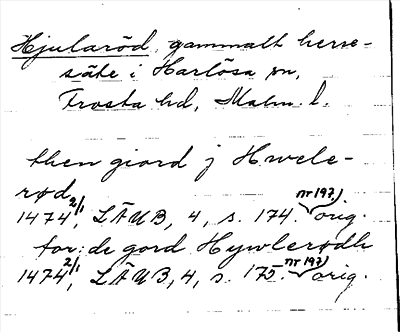 Hjularöd, gammalt herre-
säte i Harlösa sn,
Frosta hd, Malm. l.
then giord j Hwele-
rød
1474 2/1, LÄUB, 4, s. 174. nr 197.) orig.
for: de gord Hywlerødh
1474 2/1, LÄUB, 4, s. 175. nr 197.) orig.